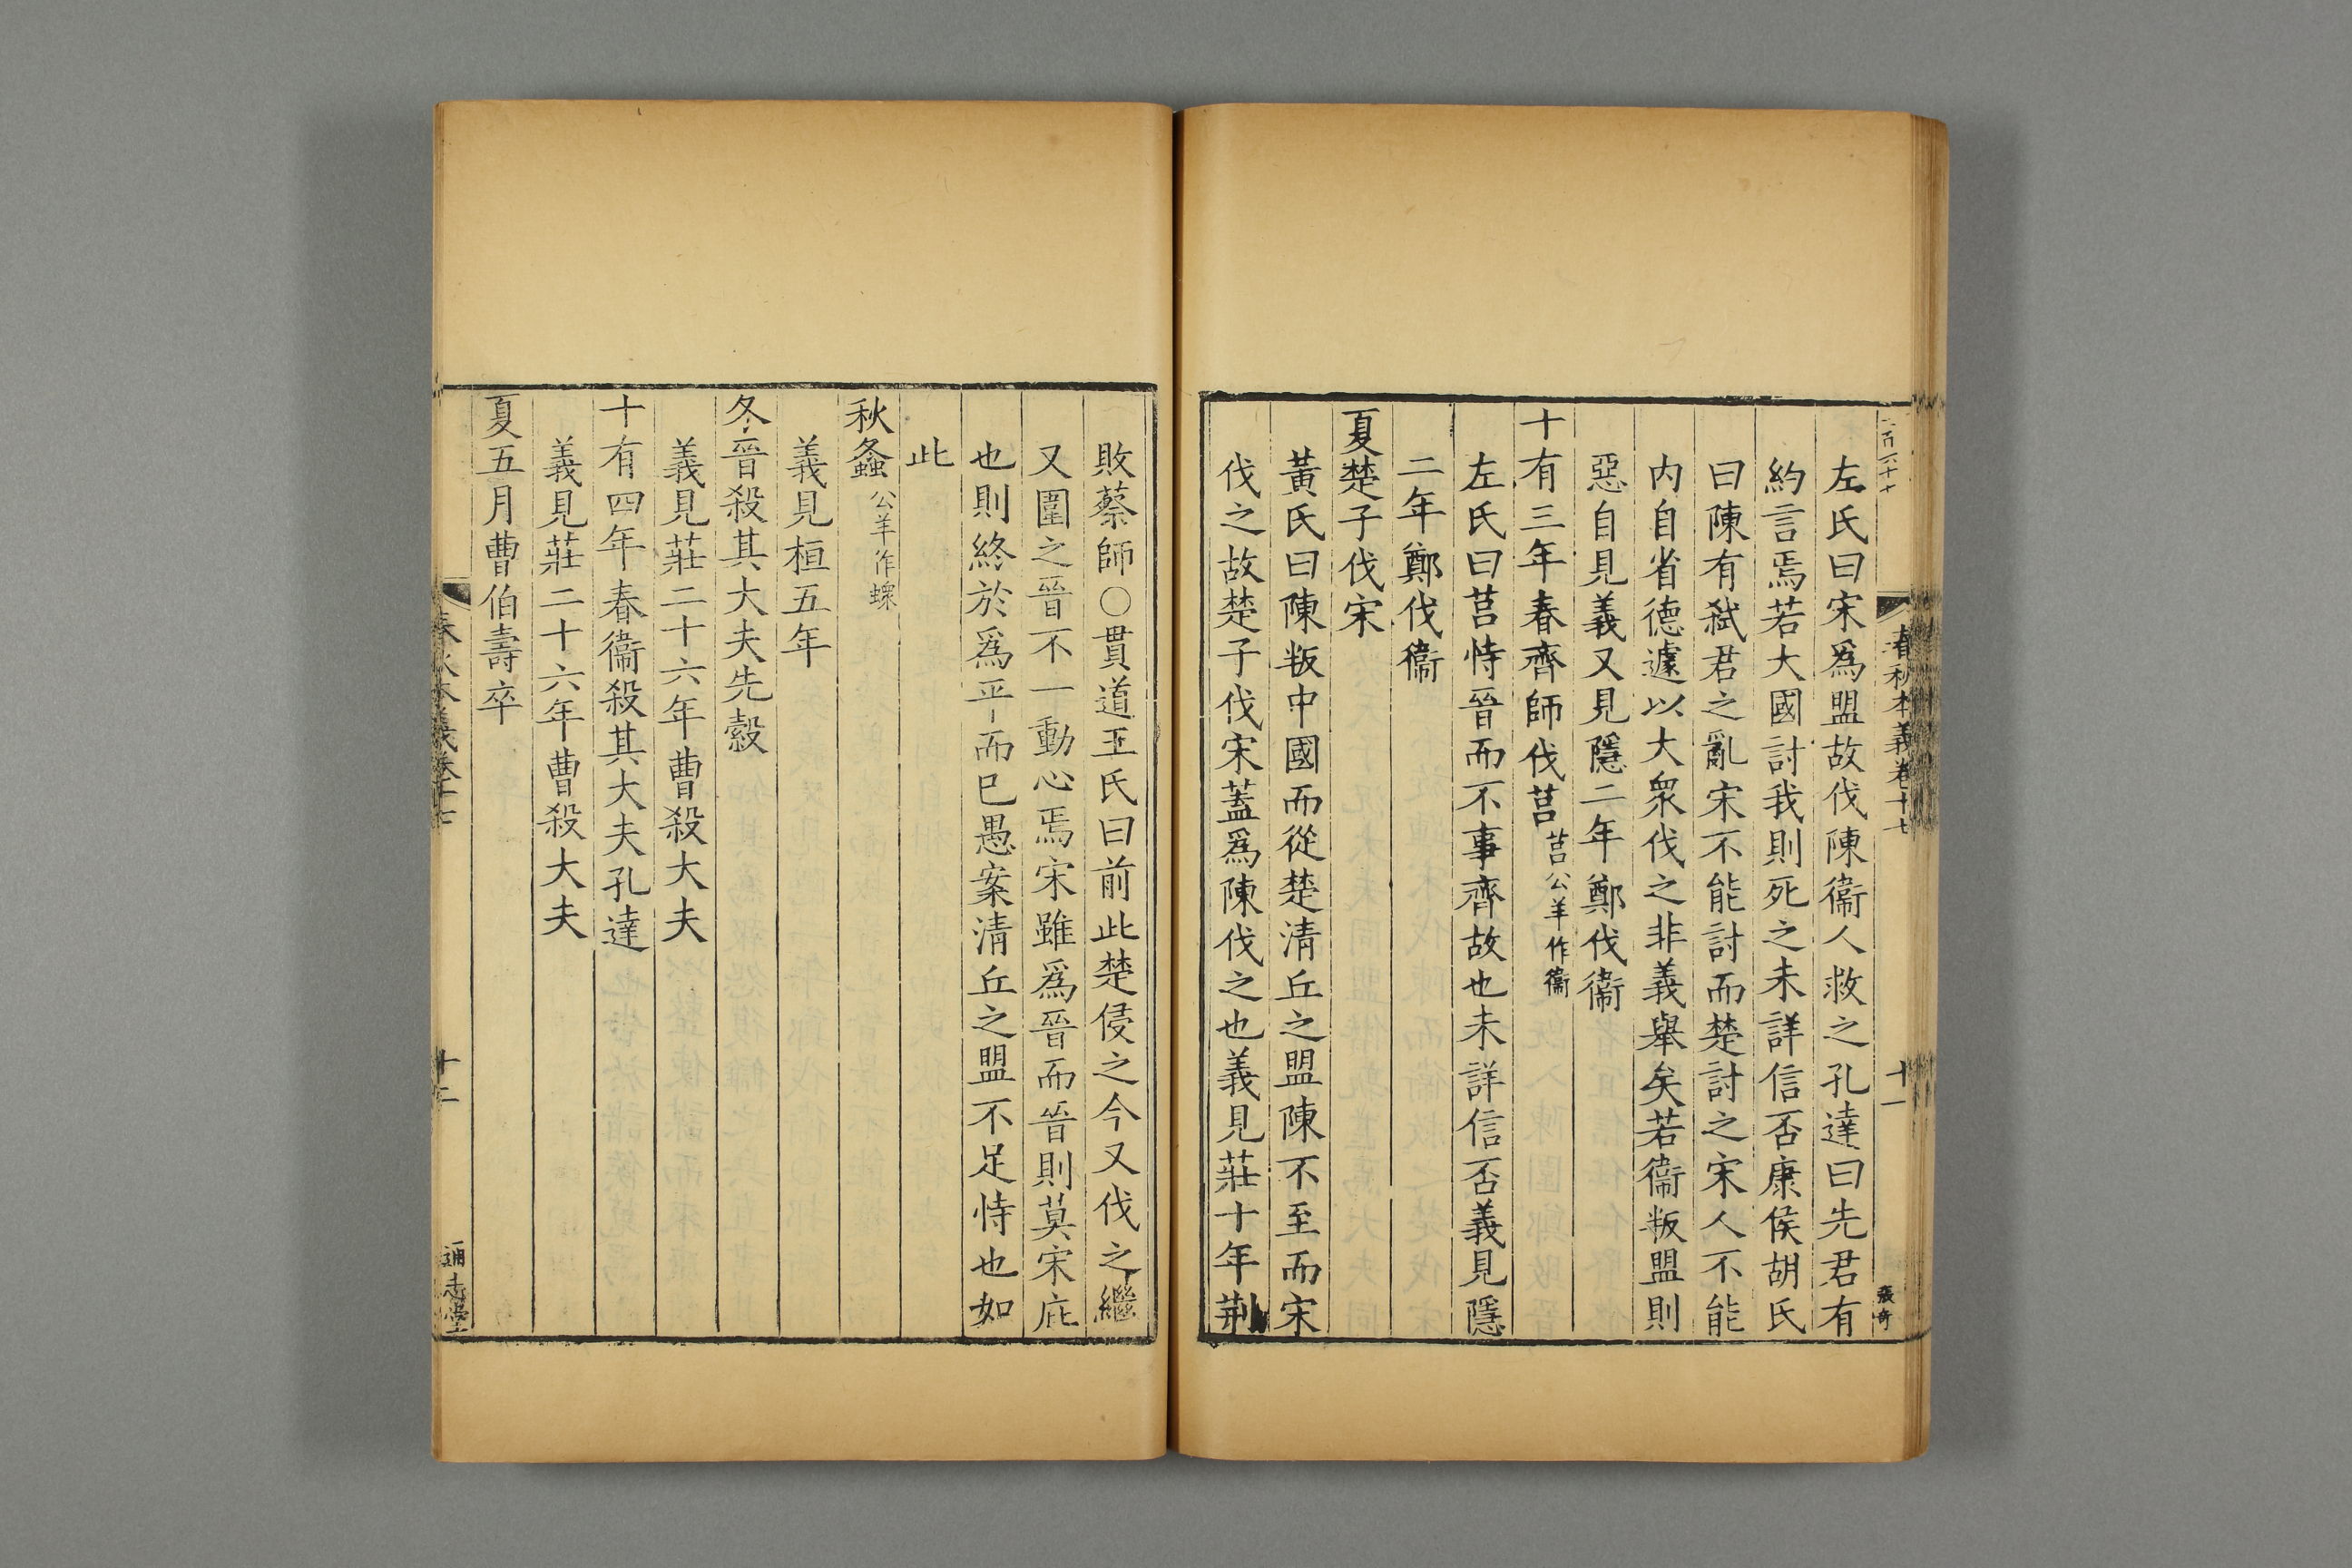 春秋本義卷十七
十一
左氏曰宋爲盟故伐陳衞人救之孔達曰先君有
約言焉若大國討我則死之未詳信否康侯胡氏
曰陳有弑君之亂宋不能討而楚討之宋人不能
内自省德遽以大衆伐之非義舉矣若衞叛盟則
惡自見義又見隱二年鄭伐衞
十有三年春齊師伐莒莒公羊作衞
左氏曰莒恃晉而不事齊故也未詳信否義見隱
二年鄭伐衞
夏楚子伐宋
黃氏曰陳叛中國而從楚清丘之盟陳不至而宋
伐之故楚子伐宋蓋爲陳伐之也義見莊十年荆
敗蔡師○貫道王氏曰前此楚侵之今又伐之繼
又圍之晉不一動心焉宋雖爲晉而晉則莫宋庇
也則終於爲平而已愚案清丘之盟不足恃也如
此
秋螽公羊作蟓
義見桓五年
冬晉殺其大夫先縠
義見莊二十六年曹殺大夫
十有四年春衞殺其大夫孔達
義見莊二十六年曹殺大夫
夏五月曹伯壽卒
春秋本義卷十七
十二
通志堂